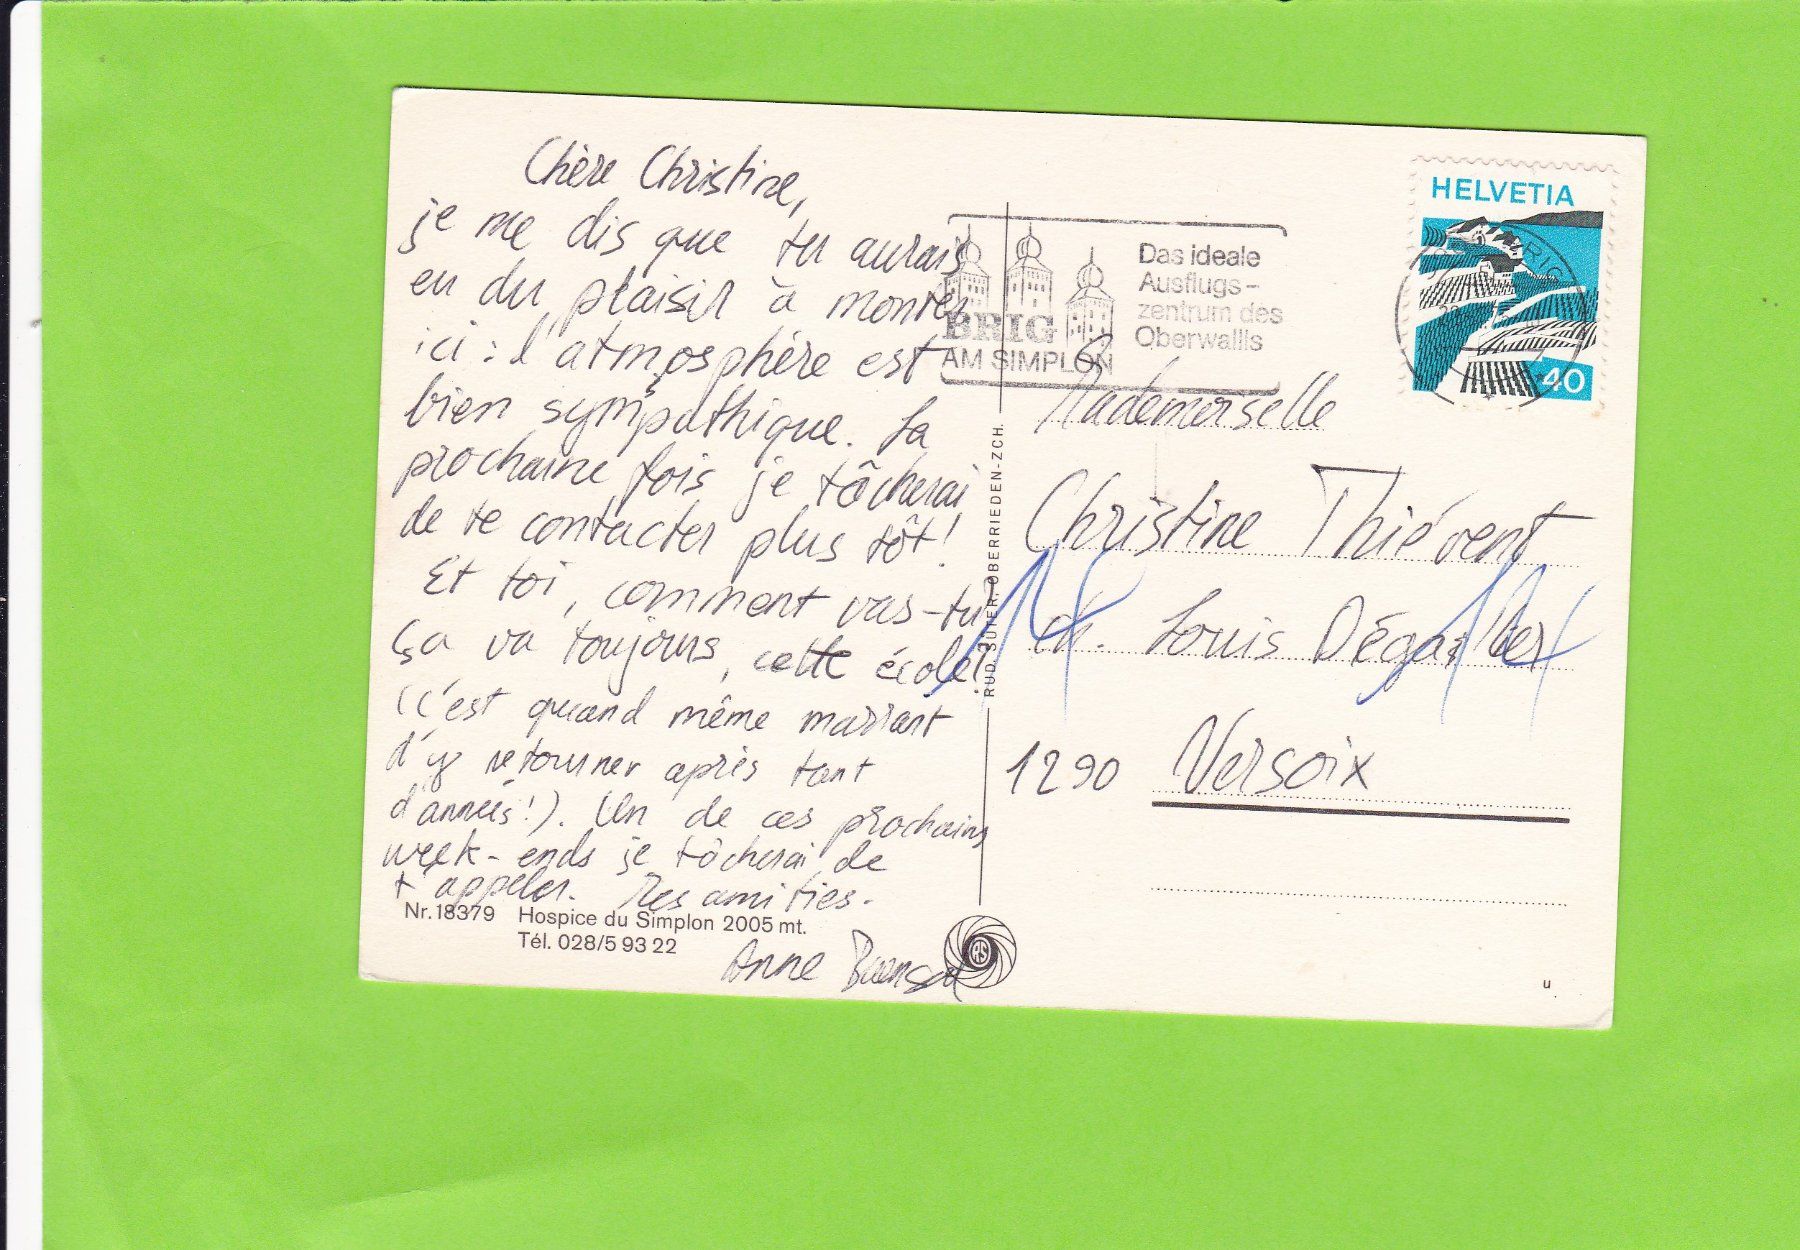 Chère Christine,
je me dis que tu aurais
eu du plaisir à monter
ici : l'atmosphère est
bien sympathique. La
prochaine fois je tâcherai
de te contacter plus tôt!
Et toi, comment vas-tu?
Ça va toujours, cette école?
(c'est quand même marrant
d'y retourner après tant
d'années!). Un de ces prochains
week-ends je tâcherai de
t'appeler. Mes amitiés.
Anne
Nr. 18379 Hospice du Simplon 2005 mt.
Tél. 028/5 93 22
RUD. SUTER, OBERRIEDEN-ZCH.
BRIG
AM SIMPLON
Das ideale
Ausflugs-
zentrum des
Oberwallis
HELVETIA
BRIG
40
Mademoiselle
Christine Thiévent
ch. Louis Dégallier
1290 Versoix
RS
u